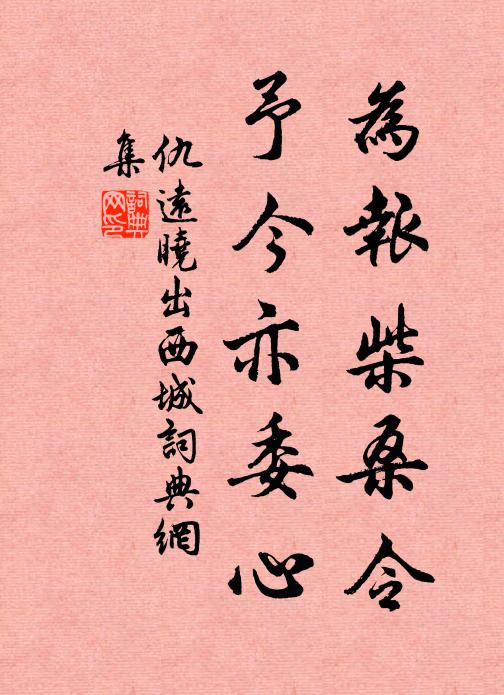 為報柴桑令
予今亦委心
仇遠曉出西城詞典網
集
詞典
网印